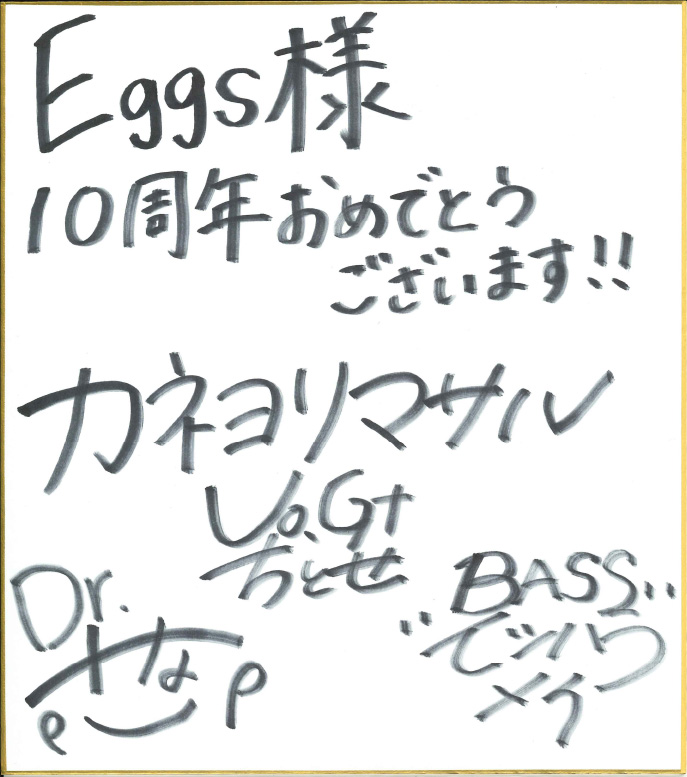 Eggs様
10周年おめでとう
ございます!!
カネヨリマサル
Vo.Gt
ちとせ
Dr.
さな
BASS
メイ